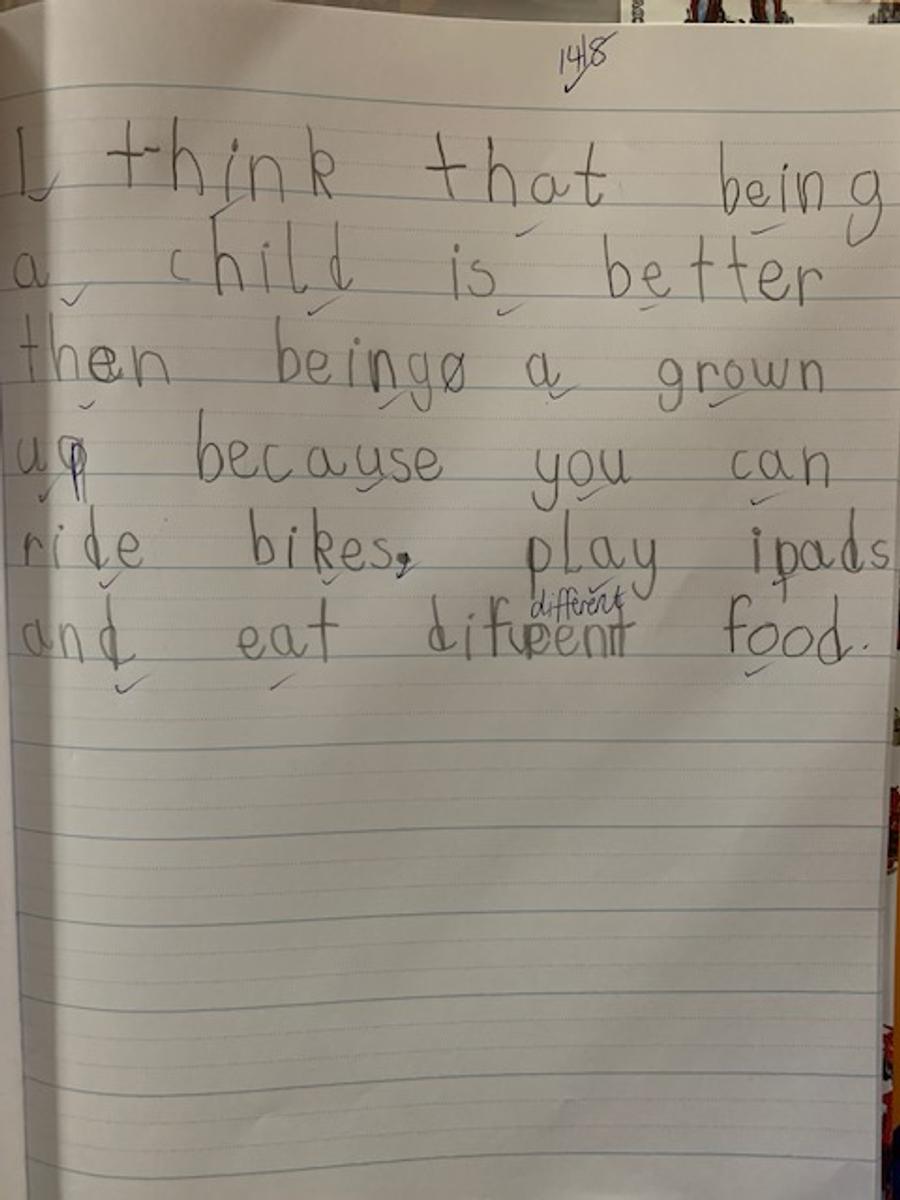 14/8
I think that being
a child is better
then being a grown
up because you can
ride bikes, play ipads
different
and eat food.